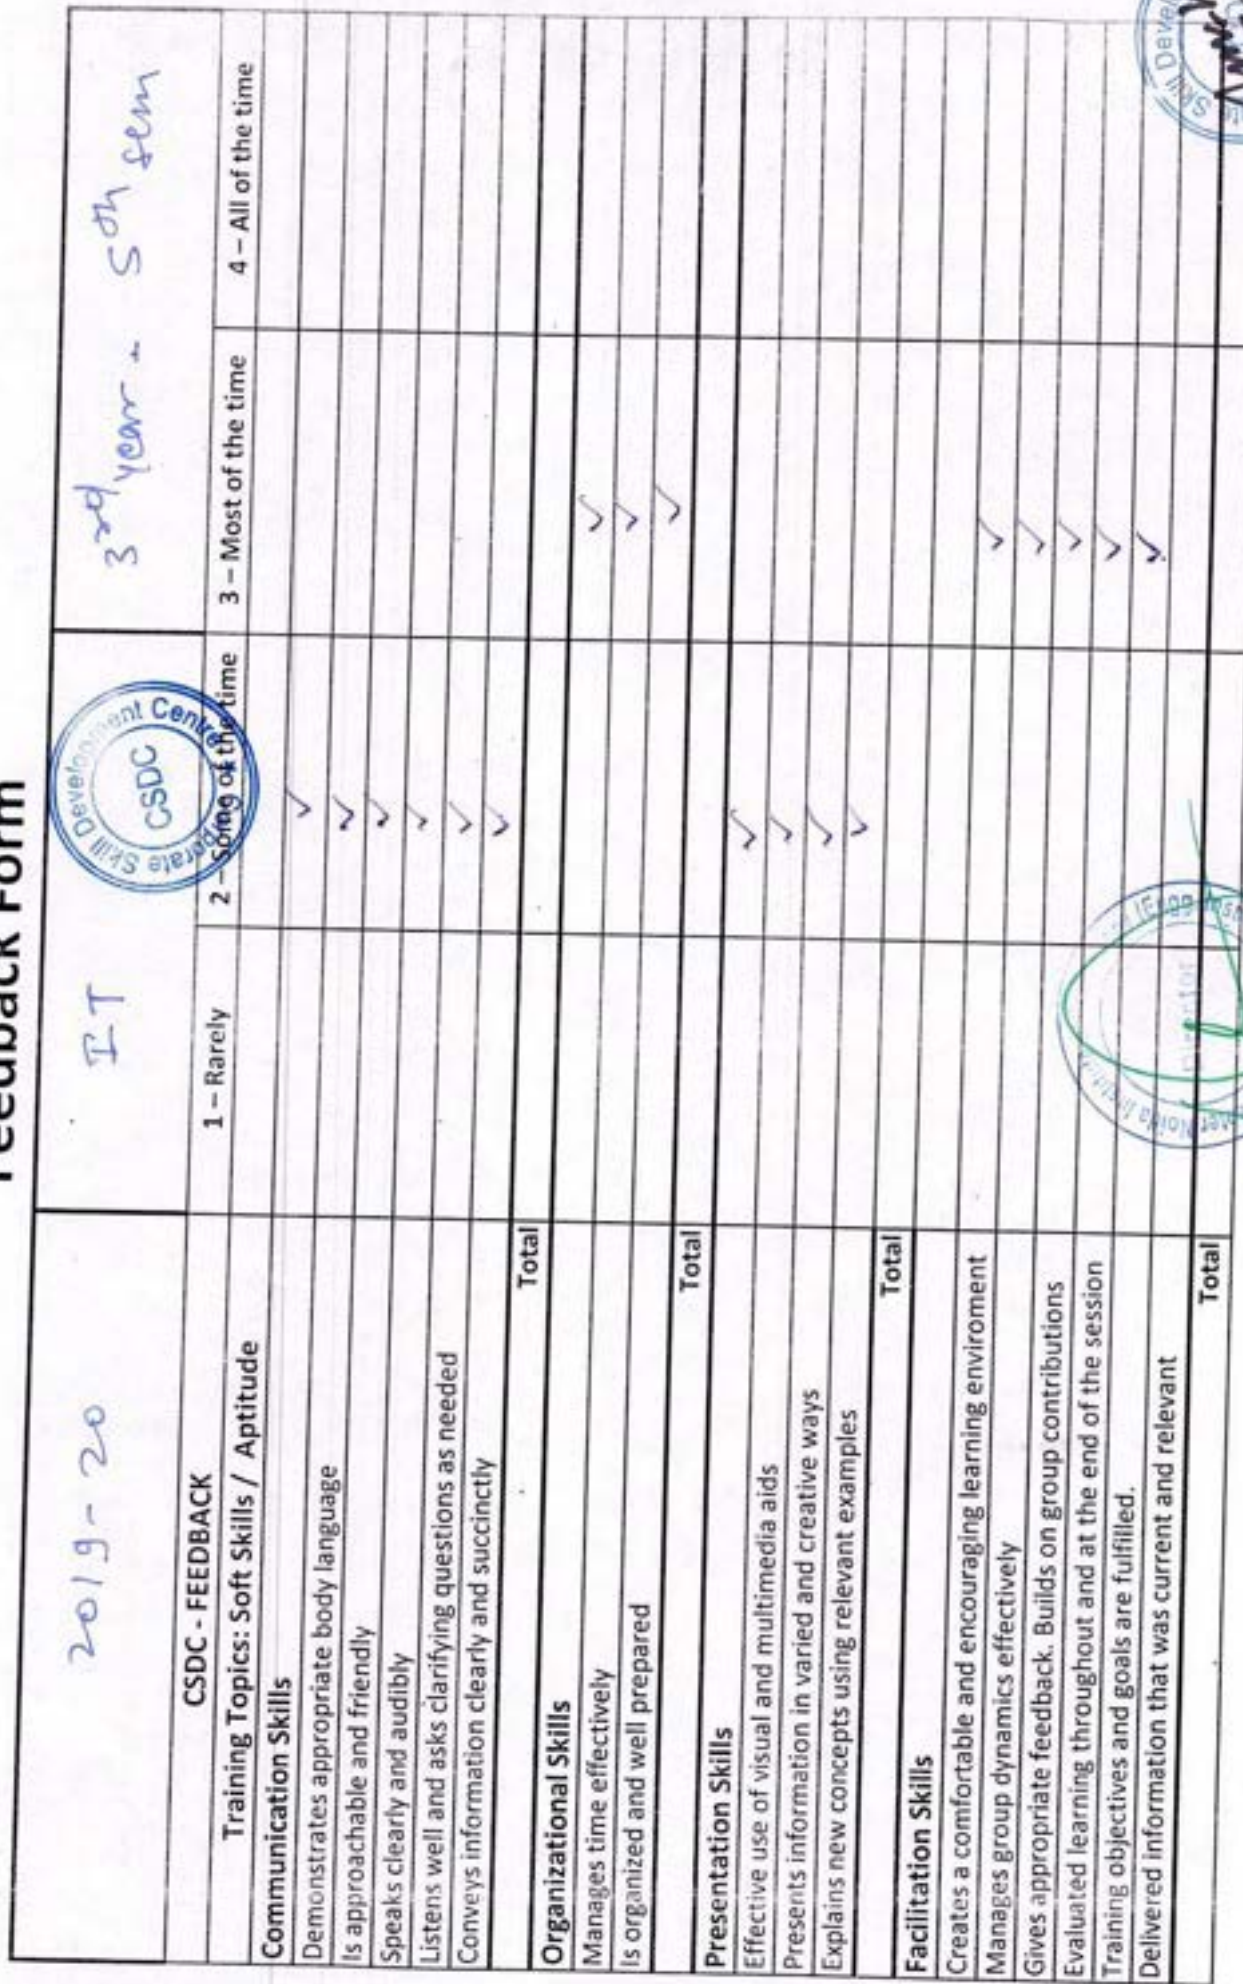 Feedback Form
2019-20 IT 3rd year - 5th sem
Skill Development Centre
CSDC
CSDC - FEEDBACK
Training Topics: Soft Skills / Aptitude 1 – Rarely 2 – Some of the time 3 – Most of the time 4 – All of the time
Communication Skills
Demonstrates appropriate body language ✓
Is approachable and friendly ✓
Speaks clearly and audibly ✓
Listens well and asks clarifying questions as needed ✓
Conveys information clearly and succinctly ✓
✓
Total
Organizational Skills
Manages time effectively ✓
Is organized and well prepared ✓
✓
Total
Presentation Skills
Effective use of visual and multimedia aids ✓
Presents information in varied and creative ways ✓
Explains new concepts using relevant examples ✓
✓
Total
Facilitation Skills
Creates a comfortable and encouraging learning enviroment
Manages group dynamics effectively ✓
Gives appropriate feedback. Builds on group contributions ✓
Evaluated learning throughout and at the end of the session ✓
Training objectives and goals are fulfilled. ✓
Delivered information that was current and relevant ✓
Total
Director
Noida
Skill